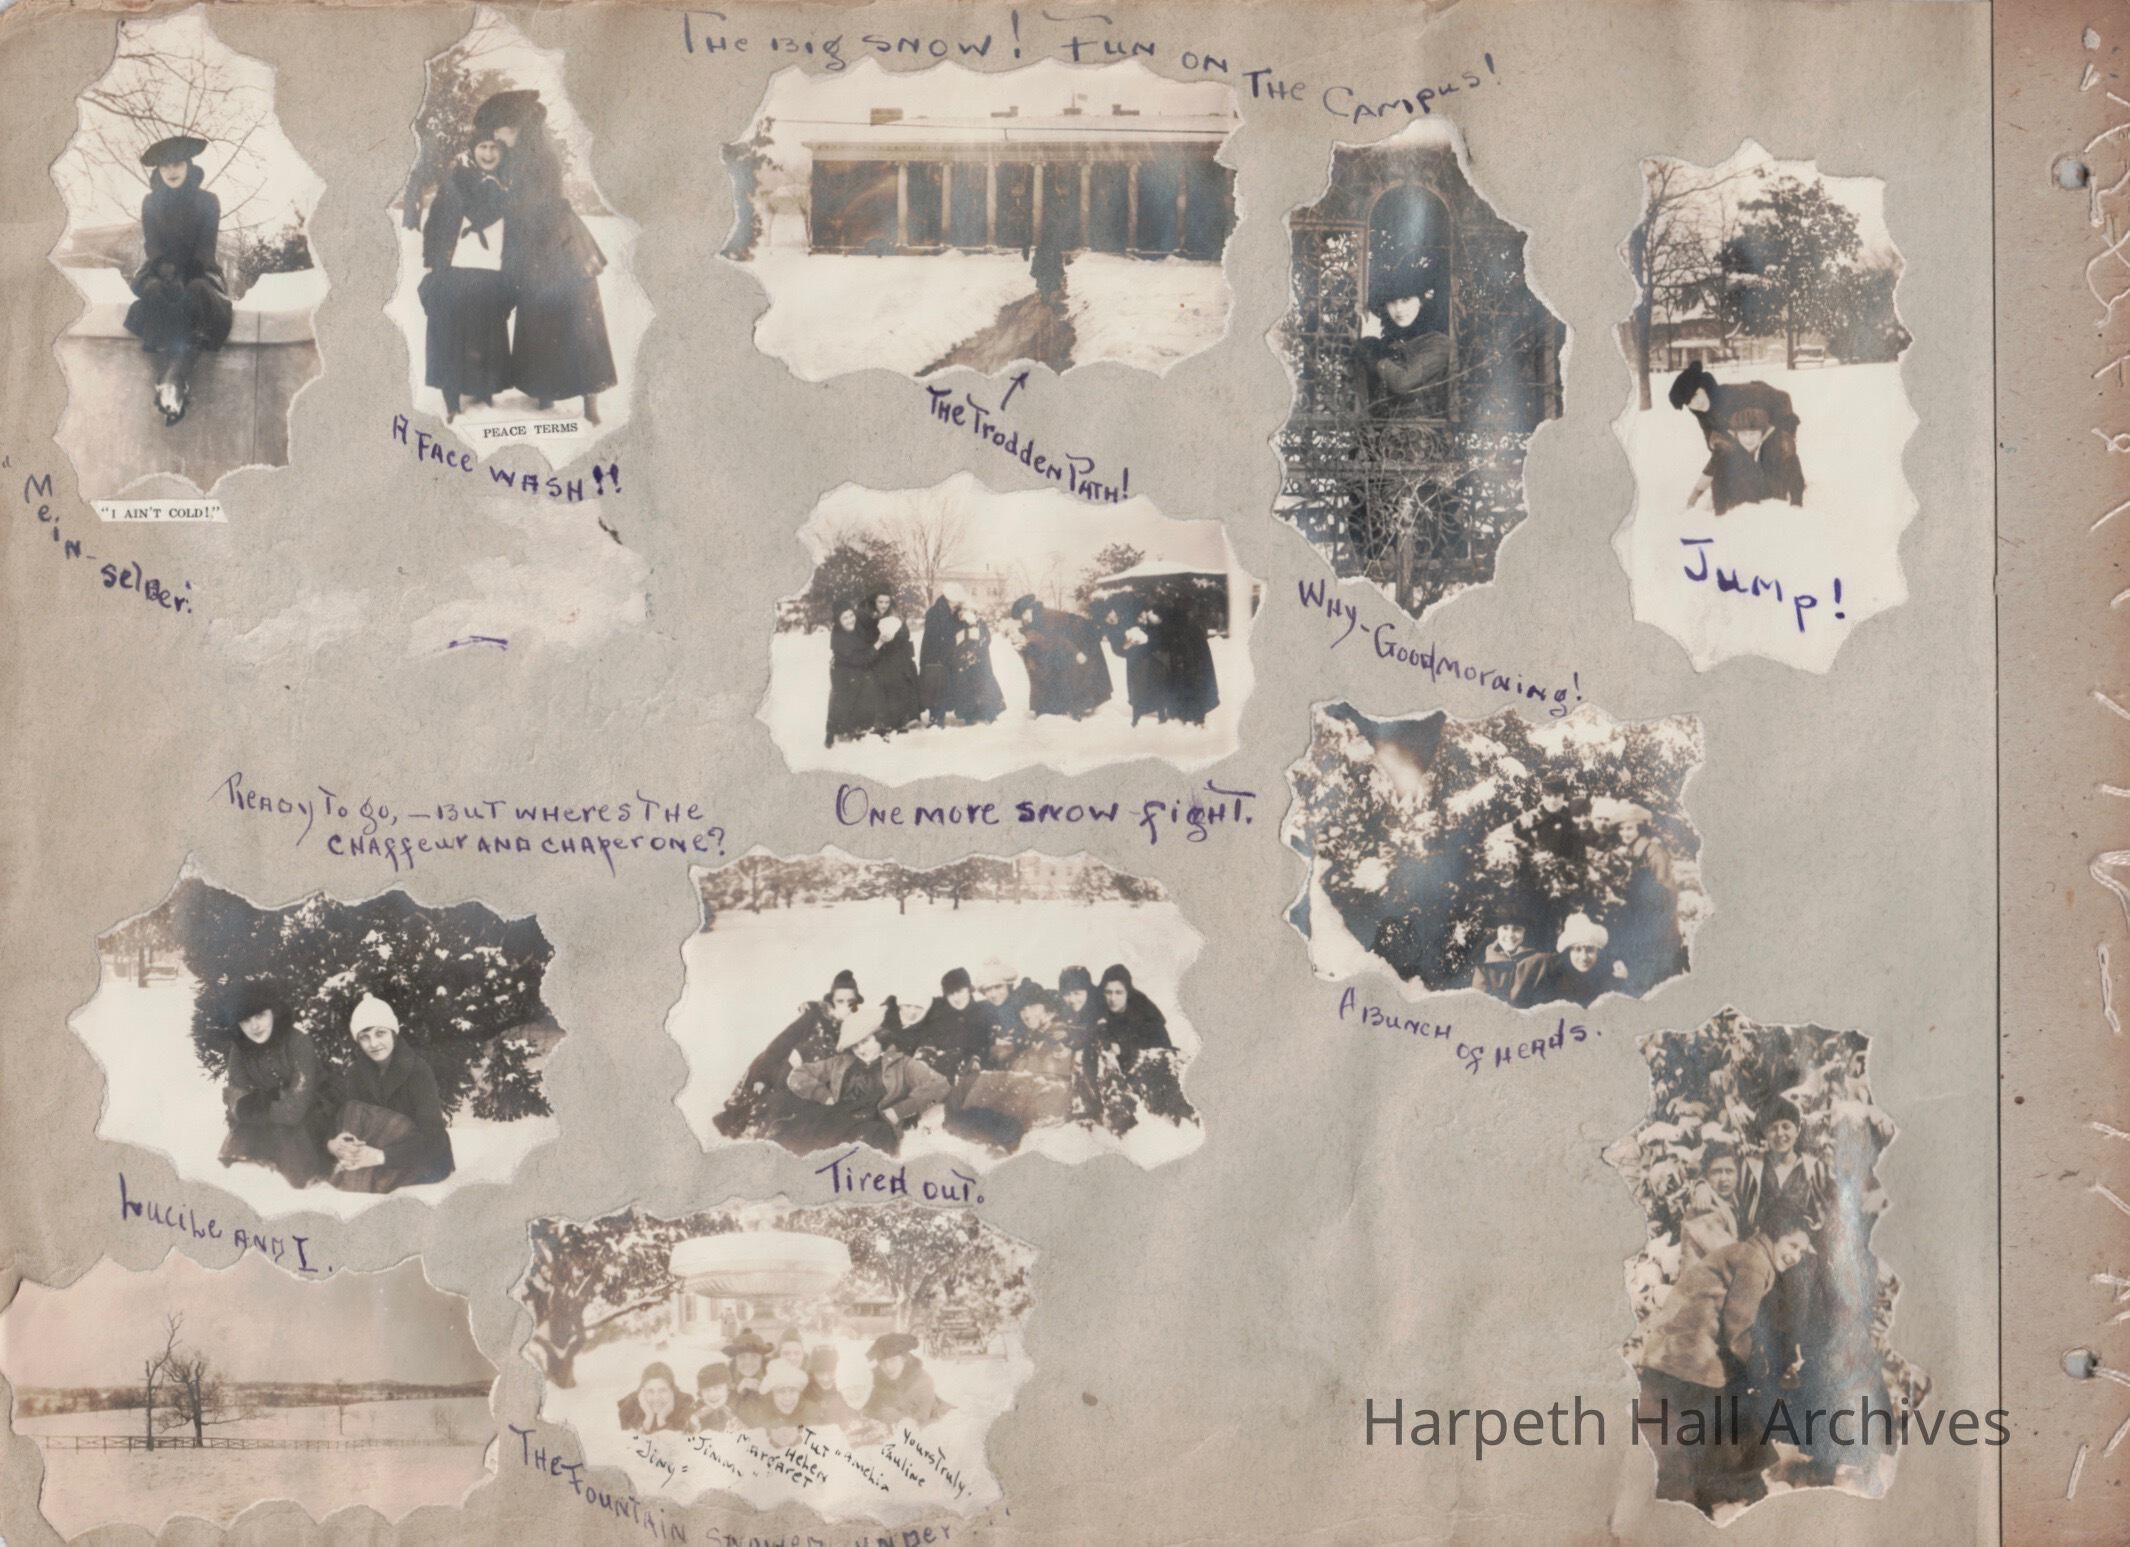 The Big Snow! Fun on the Campus!
"I AIN'T COLD!"
"Me, in-selber!
PEACE TERMS
A Face Wash!!
The Trodden Path!
Why-Goodmorning!
Jump!
One more snow fight.
Ready to go, — But wheres the
chaffeur and chaperone?
A Bunch
of Heads.
Lucile and I.
Tired out.
"Jing"
"Jimmy"
Margaret
Helen
"Tut"
Amehia
Pauline
Yours Truly.
The Fountain snowed under
Harpeth Hall Archives